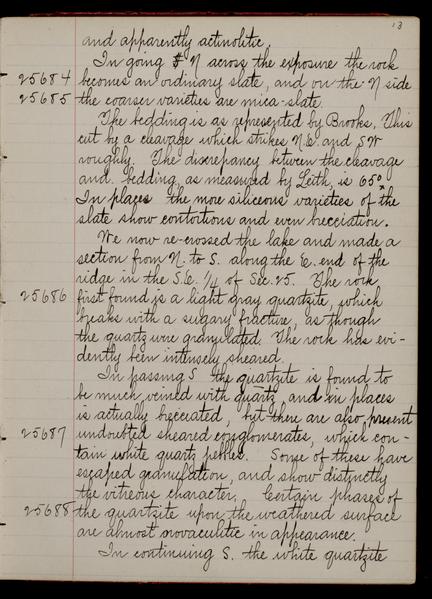 13
and apparently actinolitic.
In going N across the exposure the rock
25684 becomes an ordinary slate, and on the N side
25685 the coarser varieties are mica-slate.
The bedding is as represented by Brooks. This
cut by a cleavage which strikes N.E. and S.W
roughly. The discrepancy between the cleavage
and bedding, as measured by Leith, is 65°.
In places the more siliceous varieties of the
slate show contortions and even brecciation.
We now re-crossed the lake and made a
section from N. to S. along the E. end of the
ridge in the S.E. 1/4 of Sec. 25. The rock
25686 first found is a light gray quartzite, which
breaks with a sugary fracture, as though
the quartz were granulated. The rock has evi-
dently been intensely sheared.
In passing S the quartzite is found to
be much veined with quartz, and in places
is actually brecciated, but there are also present
25687 undoubted sheared conglomerates, which con-
tain white quartz Some of these have
escaped granulation, and show distinctly
the vitreous character. Certain phases of
25688 the quartzite upon the weathered surface
are almost novaculitic in appearance.
In continuing S. the white quartzite